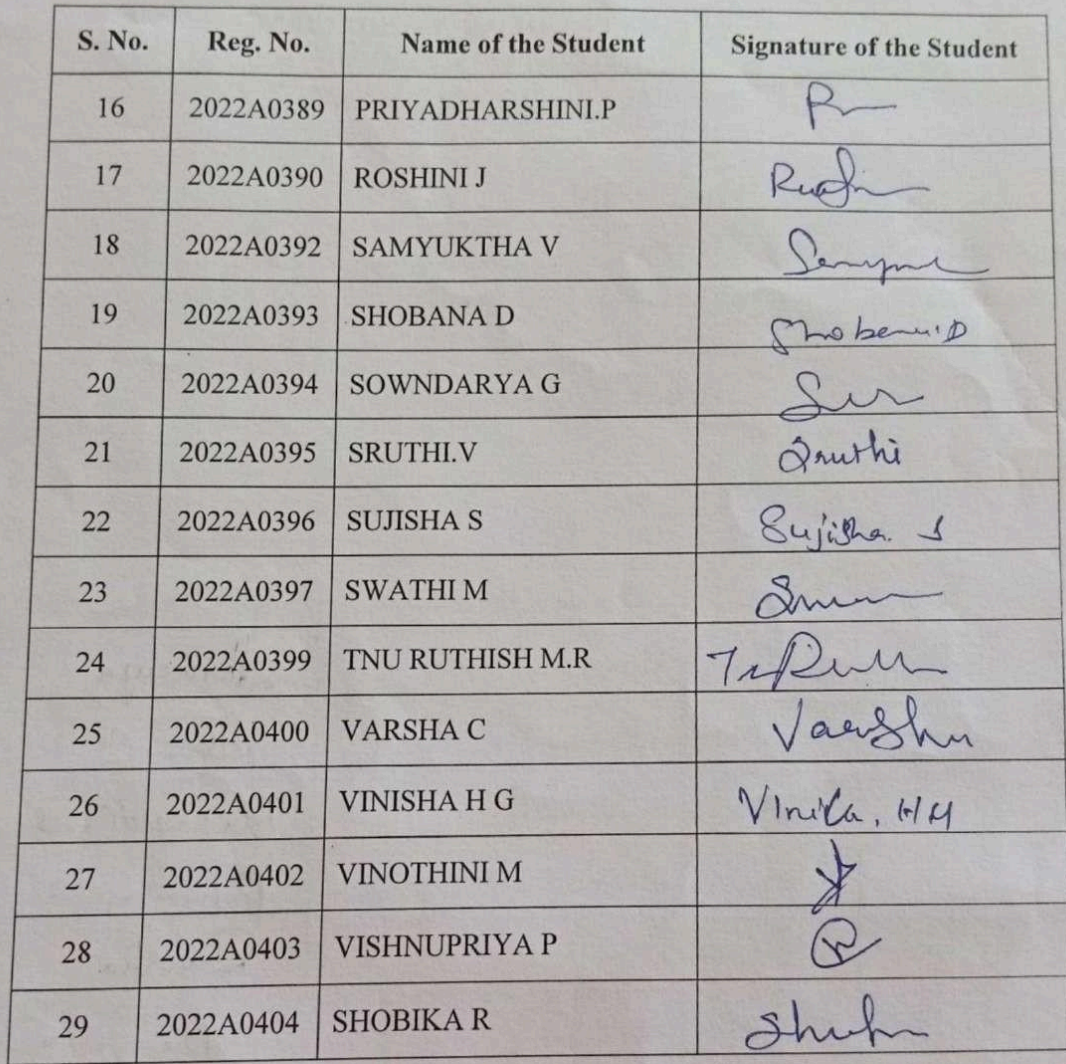 S. No. Reg. No. Name of the Student Signature of the Student
16 2022A0389 PRIYADHARSHINI.P
17 2022A0390 ROSHINI J
18 2022A0392 SAMYUKTHA V
19 2022A0393 SHOBANA D
20 2022A0394 SOWNDARYA G
21 2022A0395 SRUTHI.V Sruthi
22 2022A0396 SUJISHA S Sujisha. S
23 2022A0397 SWATHI M
24 2022A0399 TNU RUTHISH M.R
25 2022A0400 VARSHA C Varsha
26 2022A0401 VINISHA H G
27 2022A0402 VINOTHINI M
28 2022A0403 VISHNUPRIYA P
29 2022A0404 SHOBIKA R